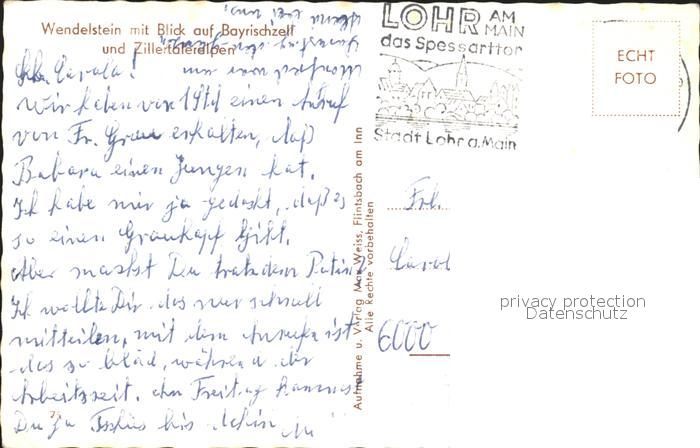 Wendelstein mit Blick auf Bayrischzell
und Zillertaleralpen
LOHR AM
MAIN
das Spessarttor
Stadt Lohr a. Main
ECHT
FOTO
Wir haben vor 1 Std einen Anruf
von Fr. Grau erhalten, daß
Babara einen Jungen hat.
Ich habe mir ja gedacht, daß es
so einen Graukopf gibt.
Aber machst Du trotzdem Patin
Ich wollte Dir das nur schnell
mitteilen, mit dem Anrufen ist
das so blöd, während der
Arbeitszeit. Am Freitag kommst
Du ja Tschüs bis dahin
Aufnahme u. Verlag Max Weiss, Flintsbach am Inn
Alle Rechte vorbehalten
Frl.
Carol
6000
privacy protection
Datenschutz